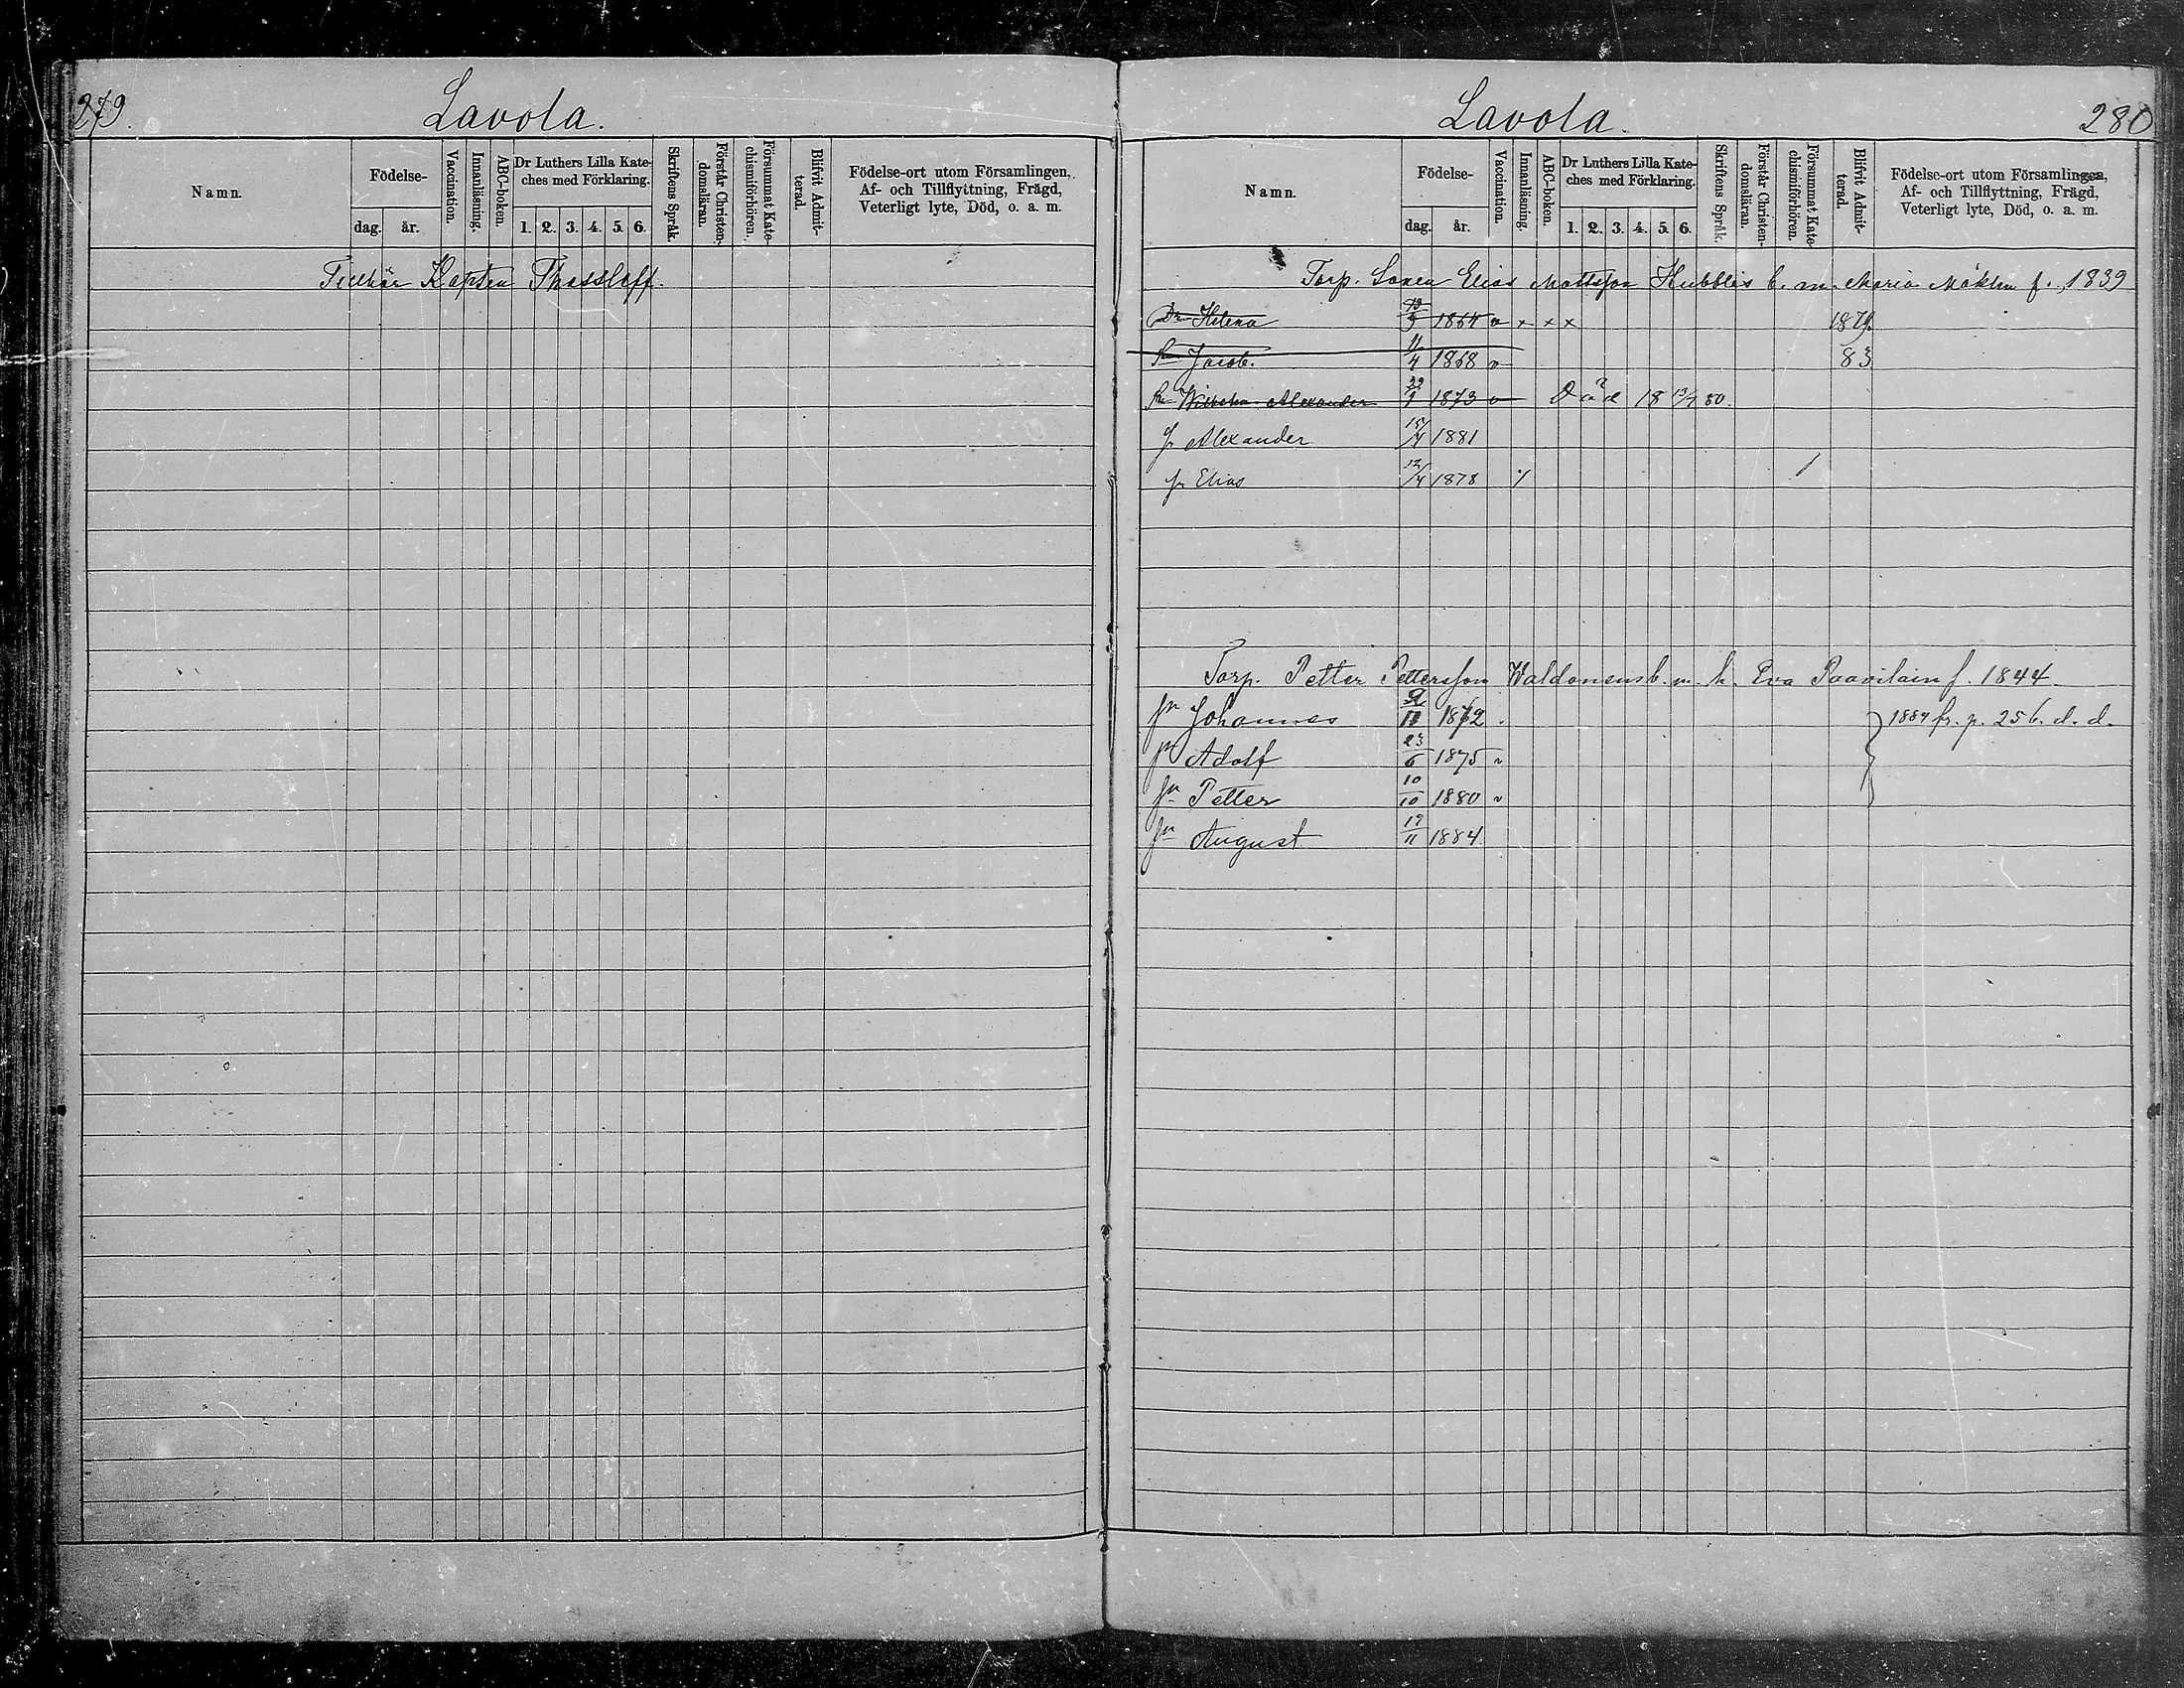 279.
Lavola.
Namn.
Födelse-
dag.
år.
Vaccination.
Innanläsning.
ABC-boken.
Dr Luthers Lilla Kate-
ches med Förklaring.
1. 2. 3. 4. 5. 6.
Skriftens Språk.
Förstår Christen-
domsläran.
Försummat Kate-
chismiförhören.
Blifvit Admit-
terad.
Födelse-ort utom Församlingen,
Af- och Tillflyttning, Frägd,
Veterligt lyte, Död, o. a. m.
Tillhör Kapten Thessleff.
Lavola.
280
Namn.
Födelse-
dag.
år.
Vaccination.
Innanläsning.
ABC-boken.
Dr Luthers Lilla Kate-
ches med Förklaring.
1. 2. 3. 4. 5. 6.
Skriftens Språk.
Förstår Christen-
domsläran.
Försummat Kate-
chismiförhören.
Blifvit Admit-
terad.
Födelse-ort utom Församlingen,
Af- och Tillflyttning, Frägd,
Veterligt lyte, Död, o. a. m.
Torp. Sonen Elias Mattsson b. m. Maria f. 1839
Dr Helena 1864 v x x x 1879.
Sn Jacob. 11/4 1868 v 83
Sn Wilhelm Alexander 1873 v Död 18 13/7 80.
fr Alexander 15/4 1881
fr Elias 12/4 1878
Torp. Petter Pettersson Waldonens b. m. h. Eva Paavilain f. 1844
fn Johannes 1872 1884 fr. p. 256. d. d.
fn Adolf 23/6 1875 v
fn Petter 10/10 1880 v
fn August 19/11 1884